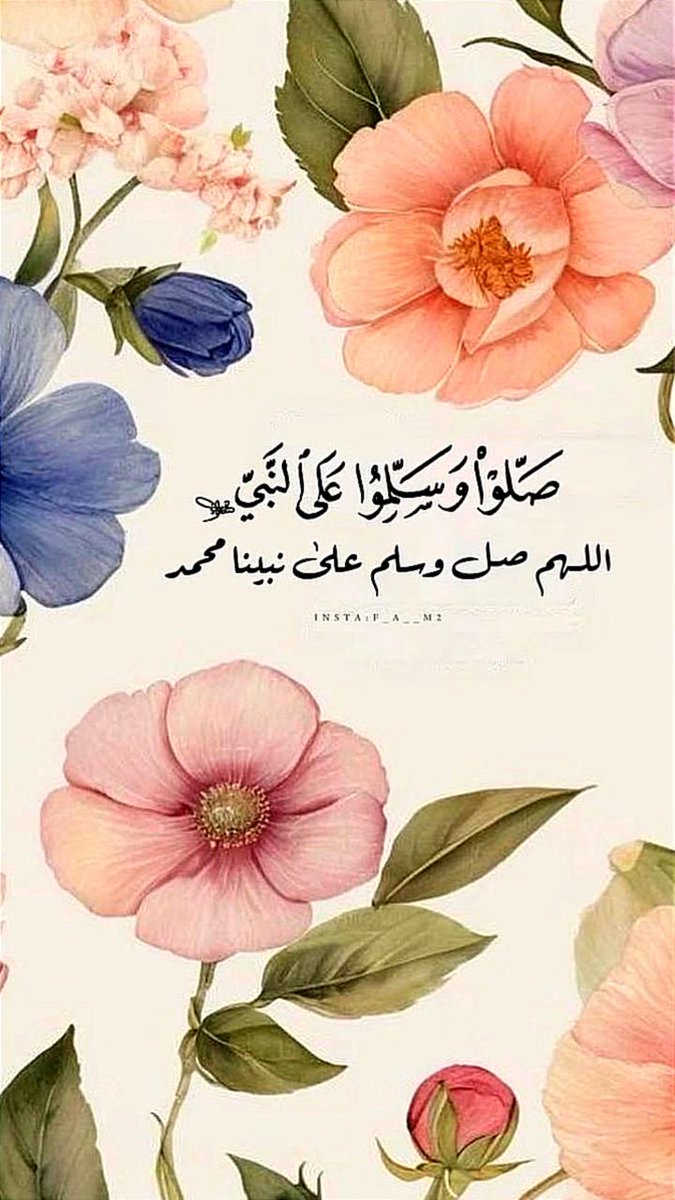 صَلّوا۟ وَسَلِّمُوا عَلَى ٱلنَّبِيّ ﷺ
اللهم صل وسلم على نبينا محمد
INSTA:F_A__M2